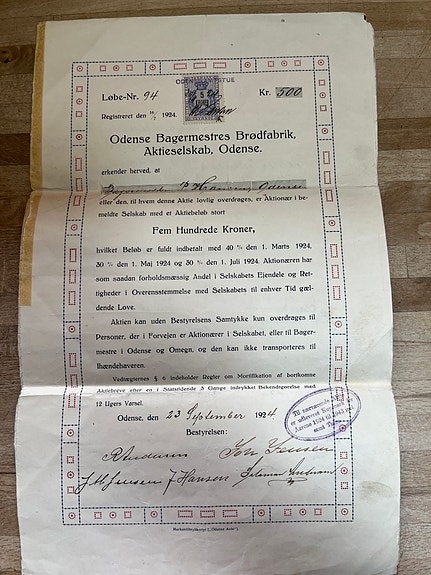 ODENSE
Løbe-Nr. 94
Kr. 500
Registreret den 16/7 1924.
Odense Bagermestres Brødfabrik,
Aktieselskab, Odense.
erkender herved, at
Bagermester P Hansen, Odense
eller den, til hvem denne Aktie lovlig overdrages, er Aktionær i be-
meldte Selskab med et Aktiebeløb stort
Fem Hundrede Kroner,
hvilket Beløb er fuldt indbetalt med 40 % den 1. Marts 1924,
30 % den 1. Maj 1924 og 30 % den 1. Juli 1924. Aktionæren har
som saadan forholdsmæssig Andel i Selskabets Ejendele og Ret-
tigheder i Overensstemmelse med Selskabets til enhver Tid gæl-
dende Love.
Aktien kan uden Bestyrelsens Samtykke kun overdrages til
Personer, der i Forvejen er Aktionærer i Selskabet, eller til Bager-
mestre i Odense og Omegn, og den kan ikke transporteres til
Ihændehaveren.
Vedtægternes § 6 indeholder Regler om Mortifikation af bortkomne
Aktiebreve efter en i Statstidende 3 Gange indrykket Bekendtgørelse med
12 Ugers Varsel.
Odense, den 23 September 1924
Bestyrelsen:
Til nærværende
er udleveret Kuponark
Aarene 1924 til 1943 incl
samt Talon
R Andersen
Jensen
Jensen J Hansen